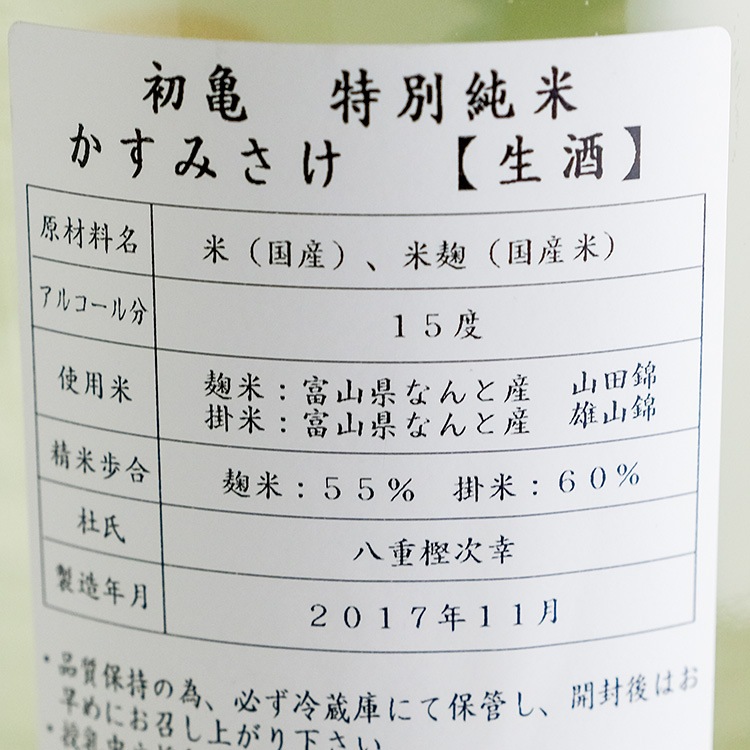 初亀　特別純米
かすみさけ　【生酒】
原材料名　米（国産）、米麹（国産米）
アルコール分　１５度
使用米　麹米：富山県なんと産　山田錦
掛米：富山県なんと産　雄山錦
精米歩合　麹米：５５％　掛米：６０％
杜氏　八重樫次幸
製造年月　２０１７年１１月
・品質保持の為、必ず冷蔵庫にて保管し、開封後はお
早めにお召し上がり下さい